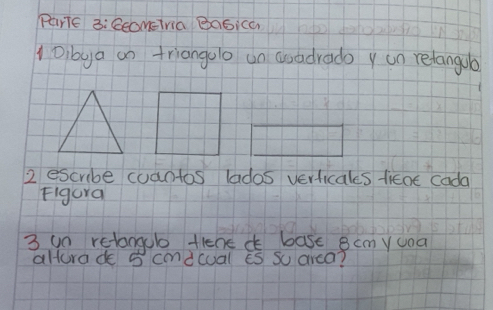 Parte 3: Geometria Basica
1 Dibuja un triangulo un cuadrado y un retangulo
2 escribe cuantos lados verticales tiene cada
Figura
3 un retangulo tiene de base 8 cm y una
altura de 5 cm ¿cual es su area?